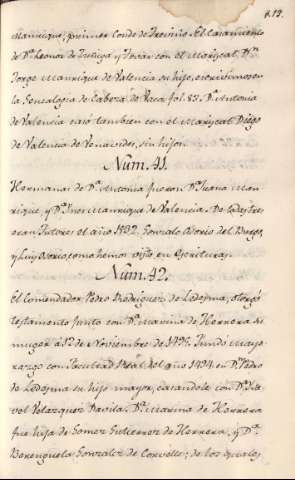 Manrique, primer Conde de Treviño. El Casamiento
de D.ª Leonor de Zuñiga y Tovar con el Mariscal D.n
Jorge Manrique de Valencia su hijo, escrivimos en
la Genealogia de Cabeza de Vaca fol. 85. D.ª Antonia
de Valencia casó tambien con el Mariscal Diego
de Valencia de Benavides, sin hijos.
Núm. 41.
Hermanas de D.ª Antonia fueron D.ª Juana Man
rique, y D.ª Ines Manrique de Valencia. De todas tres
eran Tutores el año 1492. Gonzalo Osorio del Burgo,
y Luis Osorio, como hemos visto en Escrituras.
Núm. 42.
El Comendador Pedro Rodriguez de Ledesma, otorgó
testamento junto con D.ª Marina de Herrera su
muger à 12 de Noviembre de 1495. Fundó Mayo
razgo con facultad Real del año 1494. en D.n Pedro
de Ledesma su hijo mayor, casandole con D.ª
Velazquez Davila. D.ª Marina de Herrera
fue hija de Gomez Gutierrez de Herrera, y D.ª
Berenguela Gonzalez de; de los quales,